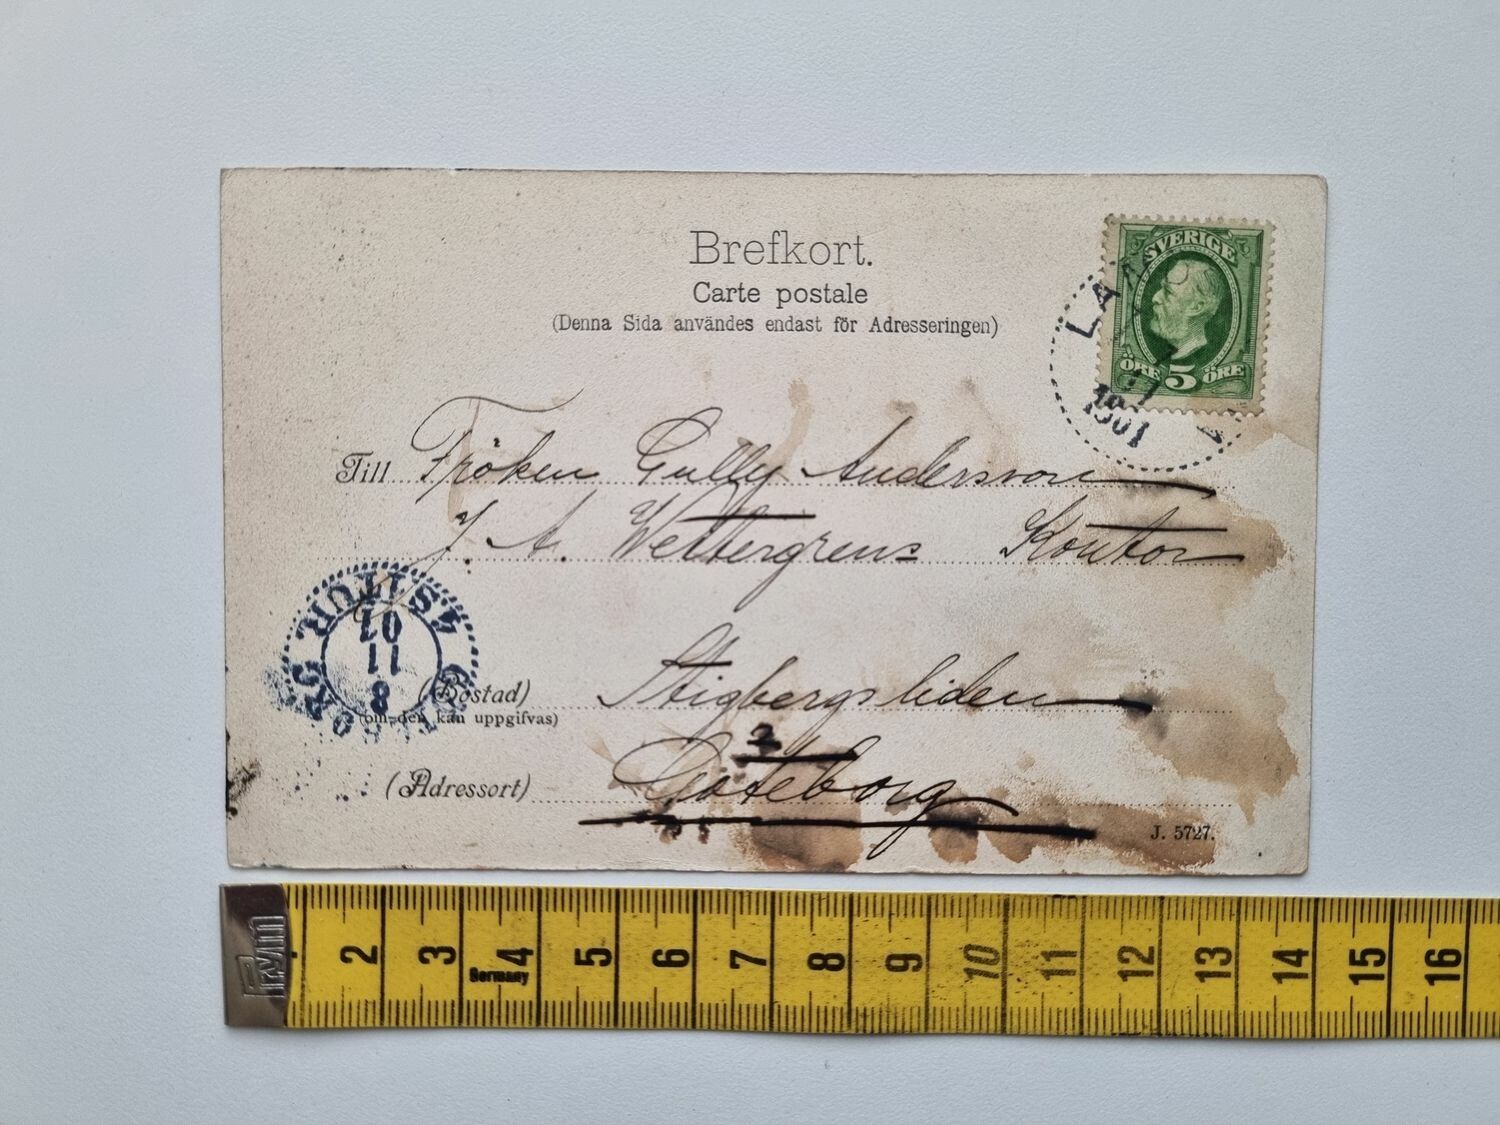 Brefkort.
Carte postale
(Denna Sida användes endast för Adresseringen)
SVERIGE
ÖRE 5 ÖRE
7
11
1901
Till Fröken Gully Andersson
J. A. Wettergrens Kontor
8
11
01
(Bostad) Stigbergsliden
(om den kan uppgifvas)
2
(Adressort) Göteborg
J. 5727.
Prym
2 3 4 5 6 7 8 9 10 11 12 13 14 15 16
Germany